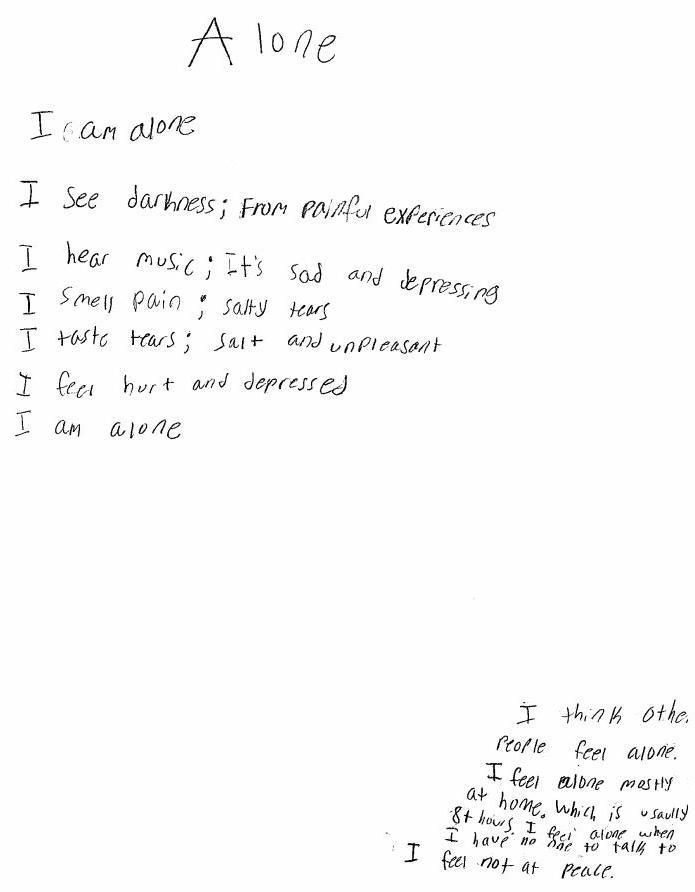 Alone
I am alone
I see darkness; From painful experiences
I hear music; It's sad and depressing
I smell pain; salty tears
I taste tears; salt and unpleasant
I feel hurt and depressed
I am alone
I think othe.
People feel alone.
I feel alone mostly
at home. Which is usaully
8+ hours I feel alone when
I have no one to talk to
I feel not at peace.